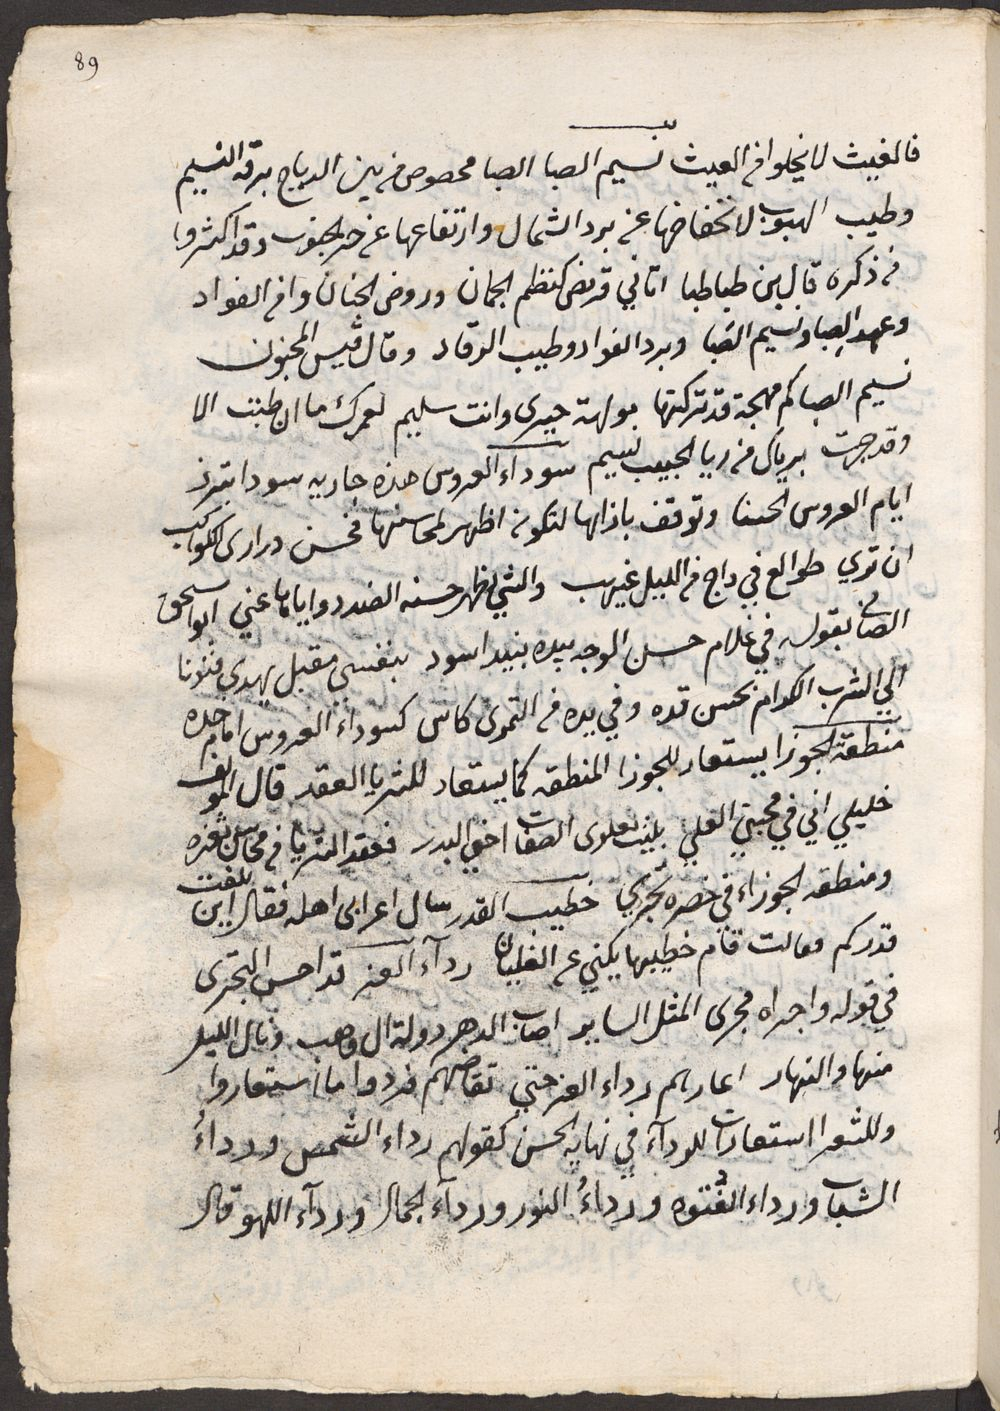 89
فالغيث لا يخلوا من العيث نسيم الصبا الصبا مخصوص من بين الرياح برقة النسيم
وطيب الهبوب لانخفاضها عن برد الشمال وارتفاعها عن حر الجنوب وقد اكثروا
من ذكره قال بن طباطبا اتاني قريض كنظم الجمان وروض الجنان وامن الفواد
وعهد الصبا ونسيم الصبا وبرد الفواد وطيب الرقاد وقال قيس المجنون
نسيم الصبا كم مهجة قد تركتها مولهة حيرى وانت سليم لعمرك ما ان طبت الا
وقد جرت برياك من ريا الحبيب نسيم سوداء العروس هذه جاريه سودا تبرز
ايام العروس الحسنا وتوقف بازايها لتكون اظهر لمحاسنها فحسن دراري الكواكب
ان تري طوالع في داج من الليل غيهب والشي يظهر حسنه الضد واياها عني ابو اسحق
الصابي بقوله في غلام حسن الوجه بيده نبيد اسود بنفسي مقبل يهدي فتونا
الي الشرب الكرام بحسن قده وفي يده من التمري كاس كسوداء العروس امام خده
منطقة الجوزا يستعار للجوزا المنطقه كما يستعار للثريا العقد قال المولف
خليلي اني في محبتي العلي بليت بعلوى الصفات اخي البدر فعقد الثريا في محاسن ثغره
ومنطقه الجوزاء في خصره تجري خطيب القدر سال اعرابي اهله فقال اين بلغت
قدركم فقالت قام خطيبها يكني عن الغليان رداء العز قد احسن البحترى
في قوله واجراه مجرى المثل الساير اصاب الدهر دولة ال وهب ونال الليل
منها والنهار اعارهم رداء العز حتي تقاضاهم فردوا ما استعاروا
وللشعرا استعارات للرداء في نهايه الحسن كقولهم رداء الشمس ورداء
الشباب ورداء الفتوه ورداء النور ورداء الجمال ورداء اللهو قال